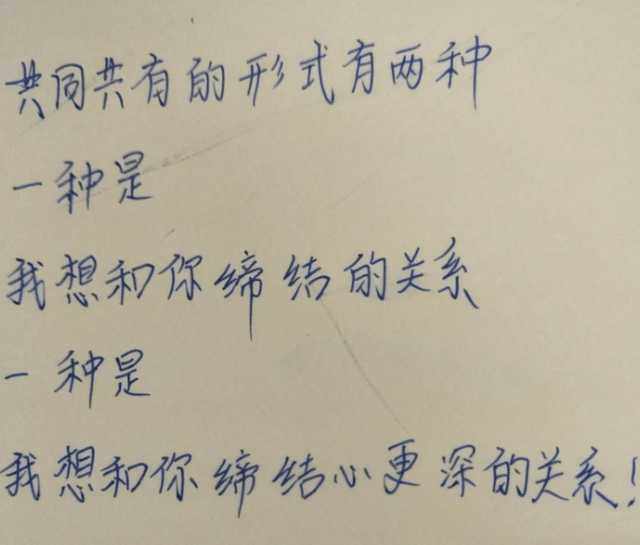 共同共有的形式有两种
一种是
我想和你缔结的关系
一种是
我想和你缔结心更深的关系！